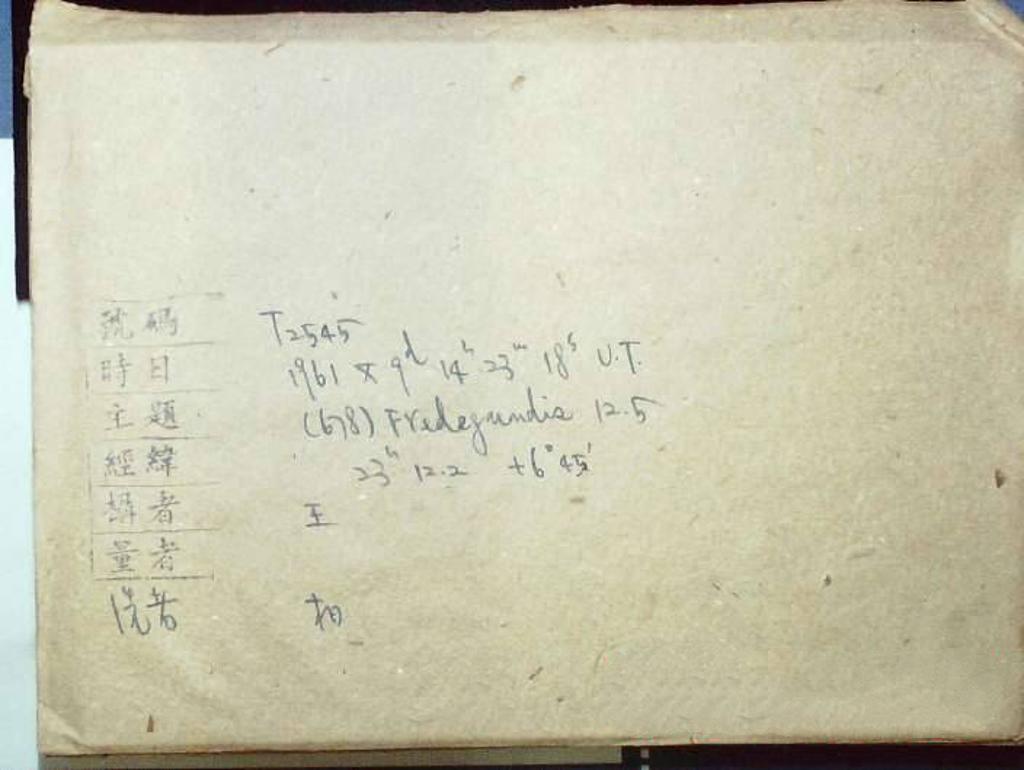 號碼 T2545
時日 1961 X 9ᵈ 14ʰ 23ᵐ 18ˢ U.T.
主題 (678) Fredegundis 12.5
經緯 23ʰ 12.2 +6° 45'
攝者 王
量者
洗者 柏